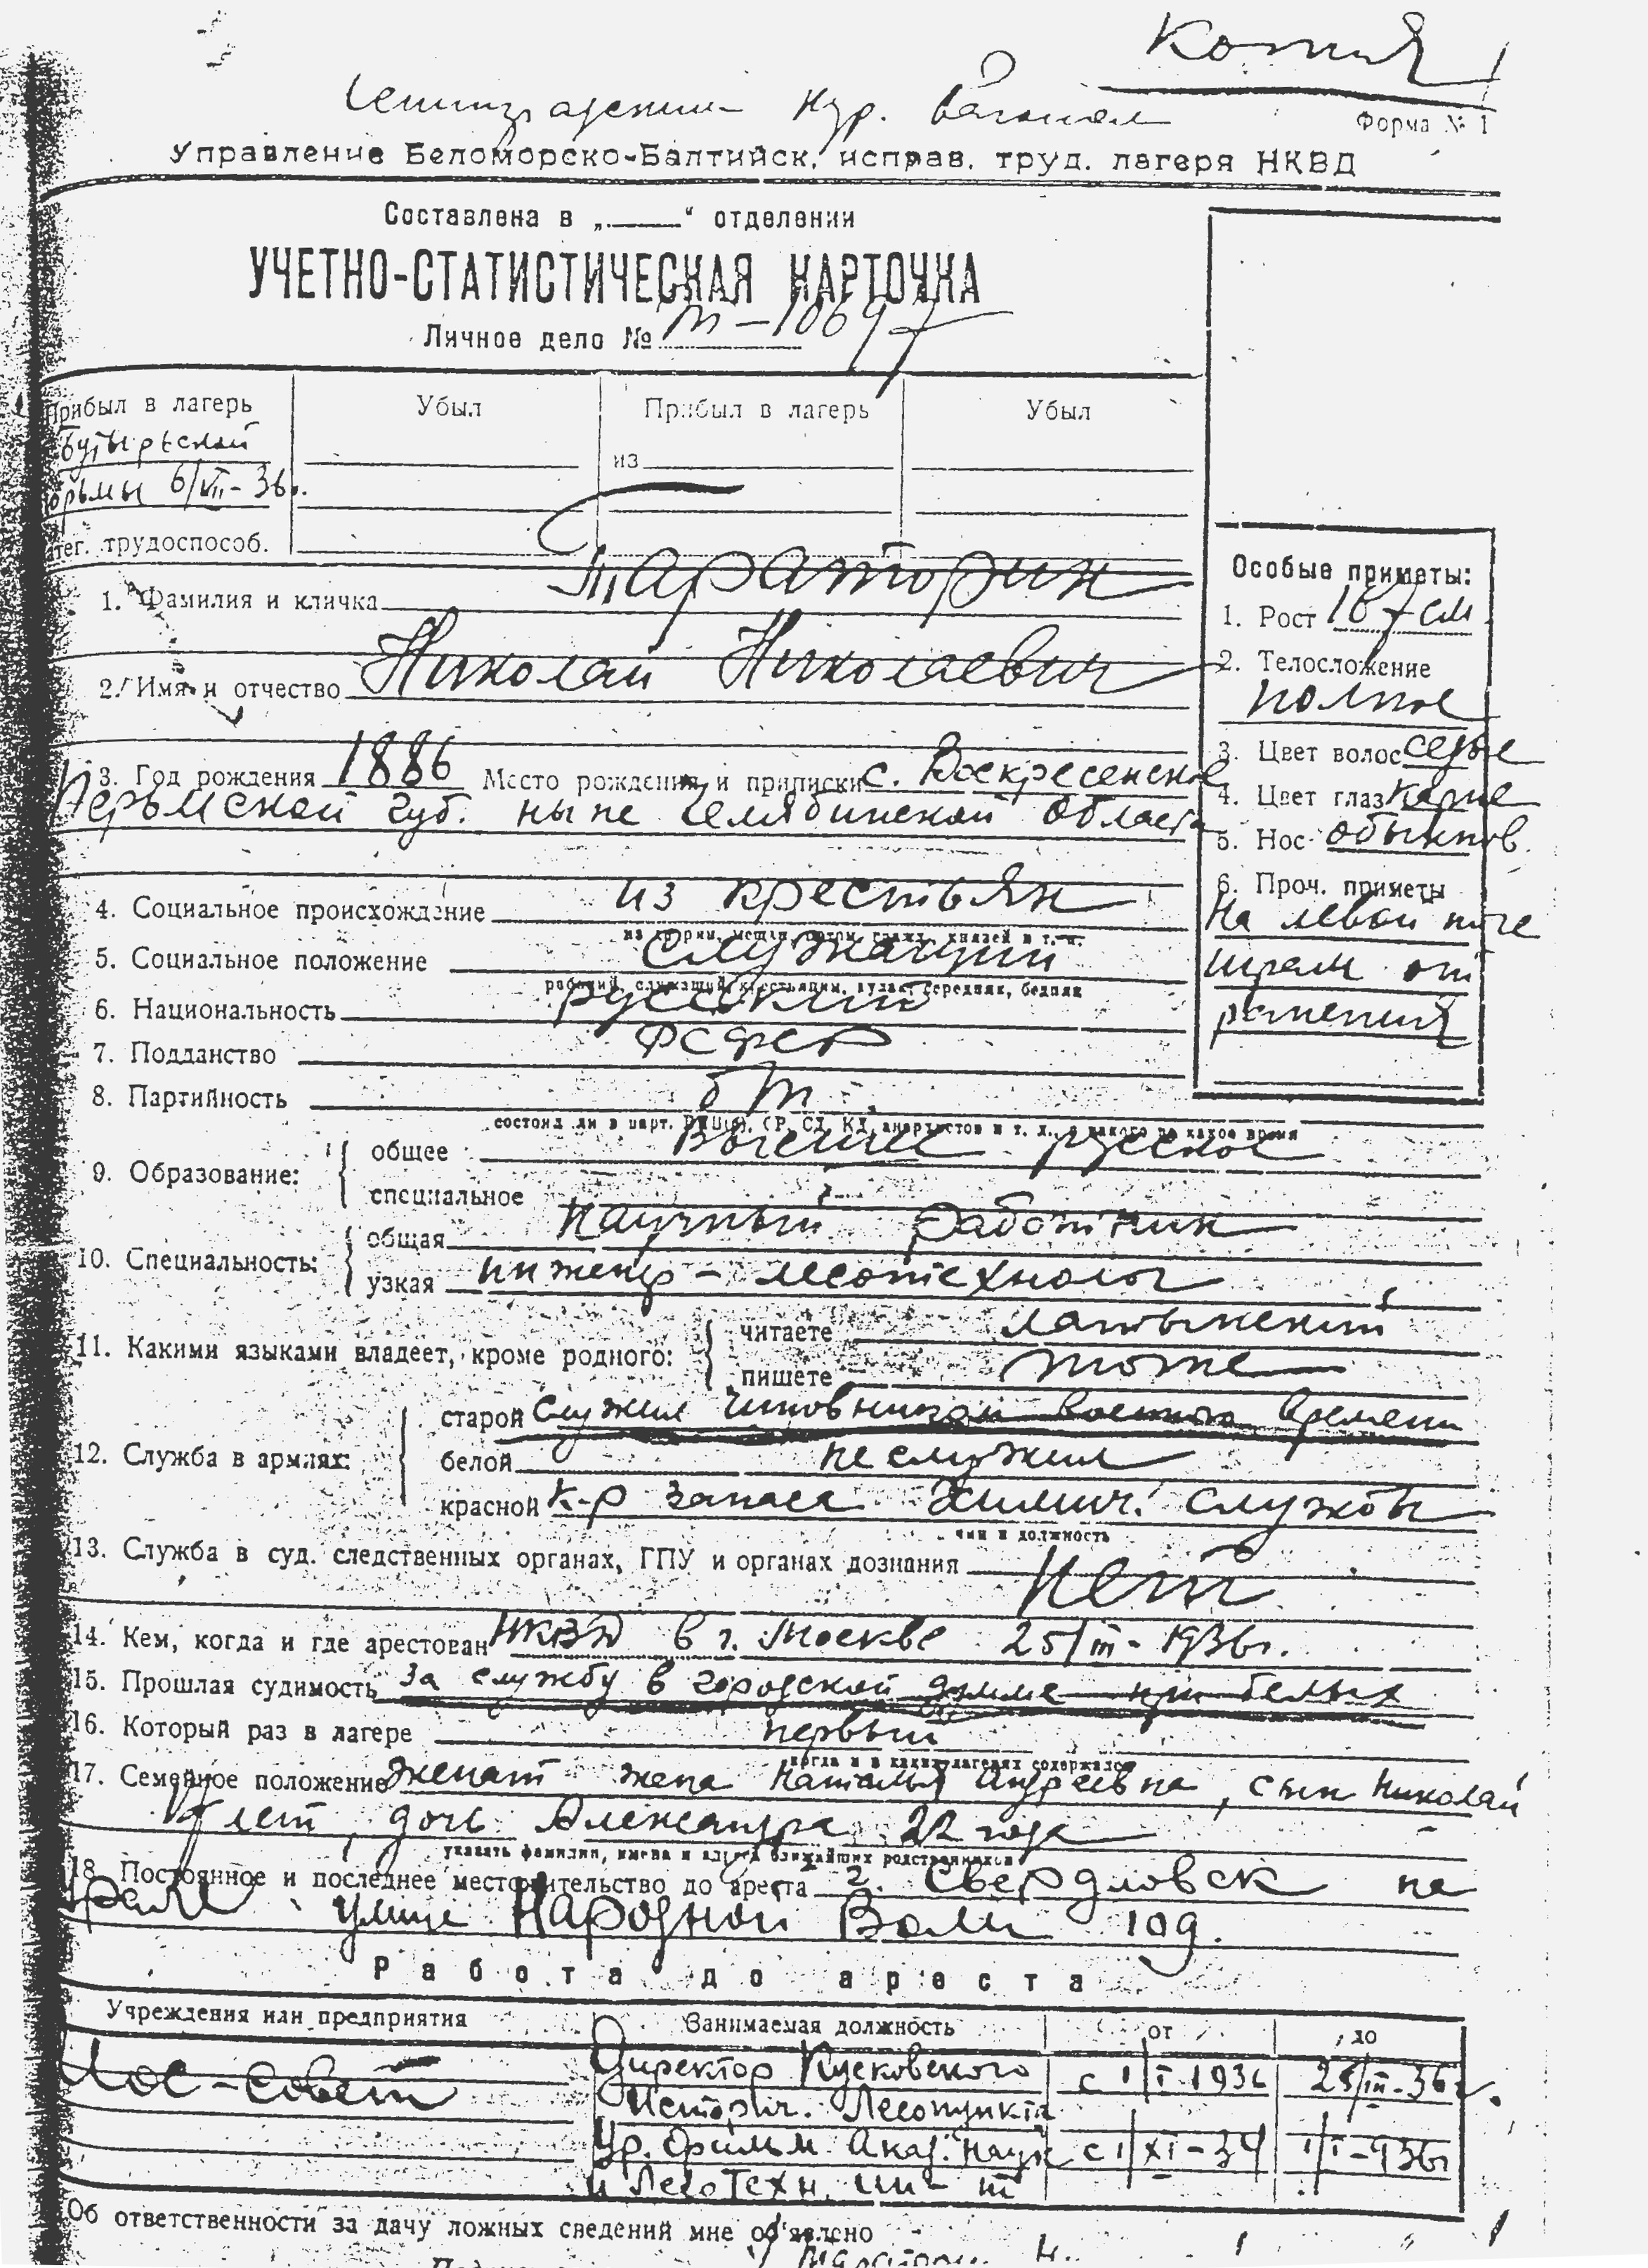 Копия
Форма № 1
Управление Беломорско-Балтийск. исправ. труд. лагеря НКВД
Составлена в „ “ отделении
УЧЕТНО-СТАТИСТИЧЕСКАЯ КАРТОЧКА
Личное дело № т-10697
Прибыл в лагерь Убыл Прибыл в лагерь Убыл
Бутырской
из
6/VII-36г.
трудоспособ.
1. Фамилия и кличка Тараторин
2. Имя и отчество Николай Николаевич
3. Год рождения 1886 Место рождения и приписки с. Воскресенское
Перьмской губ. ныне Челябинской области
4. Социальное происхождение из крестьян
5. Социальное положение служащий
рабочий, служащий, крестьянин, кулак, середняк, бедняк
6. Национальность русский
7. Подданство РСФСР
8. Партийность б/п
9. Образование: общее высшее русское
специальное
10. Специальность: общая научный работник
узкая инженер-лесотехнолог
11. Какими языками владеет, кроме родного: читаете латынский
пишете тоже
12. Служба в армиях: старой служил чиновником военного времени
белой не служил
красной к-р запаса химич. службы
чин и должность
13. Служба в суд. следственных органах, ГПУ и органах дознания нет
14. Кем, когда и где арестован НКВД в г. Москве 25/III-1936г.
15. Прошлая судимость За службу в городской думме при белых
16. Который раз в лагере первый
когда и в каких лагерях содержался
17. Семейное положение женат жена Наталья Андреевна, сын Николай
лет, дочь Александра 22 года
указать фамилии, имена и адреса ближайших родственников
18. Постоянное и последнее местожительство до ареста г. Свердловск на
Урале улица Народной Воли 109.
Работа до ареста
Учреждения или предприятия Занимаемая должность от до
Мос-совет Директор Кусковского с 1/I-1936 25/III-36г.
Историч. Лесопункта
Ур. Филиал Акад. Наук с 1/XI-34 1/I-936г
и Лесотехн. ин-т
Об ответственности за дачу ложных сведений мне об'явлено
Особые приметы:
1. Рост 167 см
2. Телосложение
полное
3. Цвет волос седые
4. Цвет глаз карие
5. Нос обыкнов.
6. Проч. приметы
На левой ноге
шрам от
ранения